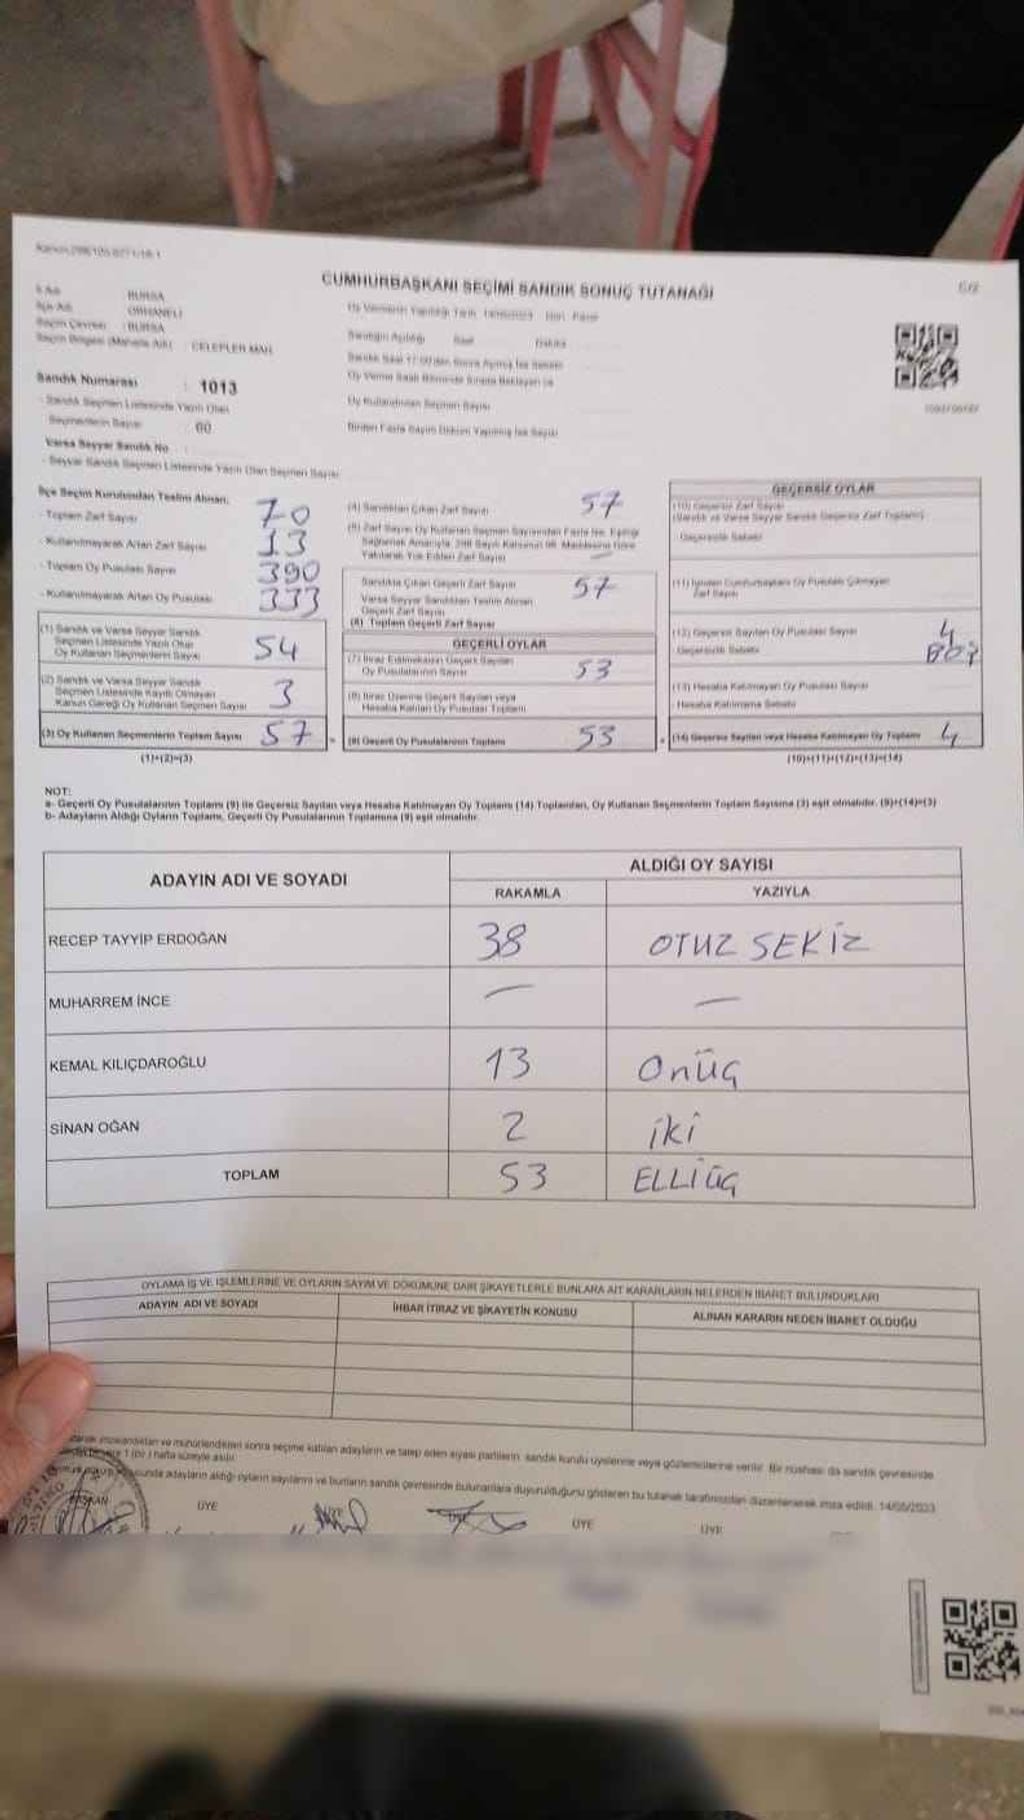 CUMHURBAŞKANI SEÇİMİ SANDIK SONUÇ TUTANAĞI
İl Adı : BURSA
İlçe Adı : ORHANELİ
Seçim Çevresi : BURSA
Seçim Bölgesi (Mahalle Adı) : CELEPLER MAH.
Sandık Numarası : 1013
- Sandık Seçmen Listesinde Yazılı Olan
Seçmenlerin Sayısı : 60
Varsa Seyyar Sandık No :
- Seyyar Sandık Seçmen Listesinde Yazılı Olan Seçmen Sayısı
Oy Kullanılan Seçmen Sayısı
Birden Fazla Sayım Döküm Yapılmış İse Sayısı
İlçe Seçim Kurulundan Teslim Alınan;
- Toplam Zarf Sayısı 70
- Kullanılmayarak Artan Zarf Sayısı 13
- Toplam Oy Pusulası Sayısı 390
- Kullanılmayarak Artan Oy Pusulası 333
(1) Sandık ve Varsa Seyyar Sandık
Seçmen Listesinde Yazılı Olup
Oy Kullanan Seçmenlerin Sayısı 54
(2) Sandık ve Varsa Seyyar Sandık
Seçmen Listesinde Kayıtlı Olmayan
Kanun Gereği Oy Kullanan Seçmen Sayısı 3
(3) Oy Kullanan Seçmenlerin Toplam Sayısı 57
(1)+(2)=(3)
(4) Sandıktan Çıkan Zarf Sayısı 57
Sandıkta Çıkan Geçerli Zarf Sayısı 57
Varsa Seyyar Sandıktan Teslim Alınan
Geçerli Zarf Sayısı
(6) Toplam Geçerli Zarf Sayısı
GEÇERLİ OYLAR
(7) İtiraz Edilmeksizin Geçerli Sayılan
Oy Pusulalarının Sayısı 53
(8) İtiraz Üzerine Geçerli Sayılan veya
Hesaba Katılan Oy Pusulası Toplamı
(9) Geçerli Oy Pusulalarının Toplamı 53
GEÇERSİZ OYLAR
(10) Geçersiz Zarf Sayısı
(Sandık ve Varsa Seyyar Sandık Geçersiz Zarf Toplamı)
Geçersizlik Sebebi
Zarf Sayısı
(12) Geçersiz Sayılan Oy Pusulası Sayısı 4
Geçersizlik Sebebi
(13) Hesaba Katılmayan Oy Pusulası Sayısı
- Hesaba Katılmama Sebebi
(14) Geçersiz Sayılan veya Hesaba Katılmayan Oy Toplamı 4
(10)+(11)+(12)+(13)=(14)
NOT:
a- Geçerli Oy Pusulalarının Toplamı (9) ile Geçersiz Sayılan veya Hesaba Katılmayan Oy Toplamı (14) Toplamları, Oy Kullanan Seçmenlerin Toplam Sayısına (3) eşit olmalıdır. (9)+(14)=(3)
b- Adayların Aldığı Oyların Toplamı, Geçerli Oy Pusulalarının Toplamına (9) eşit olmalıdır.
ADAYIN ADI VE SOYADI
ALDIĞI OY SAYISI
RAKAMLA YAZIYLA
RECEP TAYYİP ERDOĞAN 38 OTUZ SEKİZ
MUHARREM İNCE — —
KEMAL KILIÇDAROĞLU 13 Onüç
SİNAN OĞAN 2 iki
TOPLAM 53 ELLİ üÇ
OYLAMA İŞ VE İŞLEMLERİNE VE OYLARIN SAYIM VE DÖKÜMÜNE DAİR ŞİKAYETLERLE BUNLARA AİT KARARLARIN NELERDEN İBARET BULUNDUKLARI
ADAYIN ADI VE SOYADI İHBAR İTİRAZ VE ŞİKAYETİN KONUSU ALINAN KARARIN NEDEN İBARET OLDUĞU
sonra seçime katılan adayların ve talep eden siyasi partilerin sandık kurulu üyelerine veya gözlemcilerine verilir. Bir nüshası da sandık çevresinde
1 (bir) hafta süreyle asılır.
adayların aldığı oyların sayılarını ve bunların sandık çevresinde bulunanlara duyurulduğunu gösteren bu tutanak tarafımızdan düzenlenerek imza edildi. 14/05/2023
BAŞKAN ÜYE ÜYE ÜYE